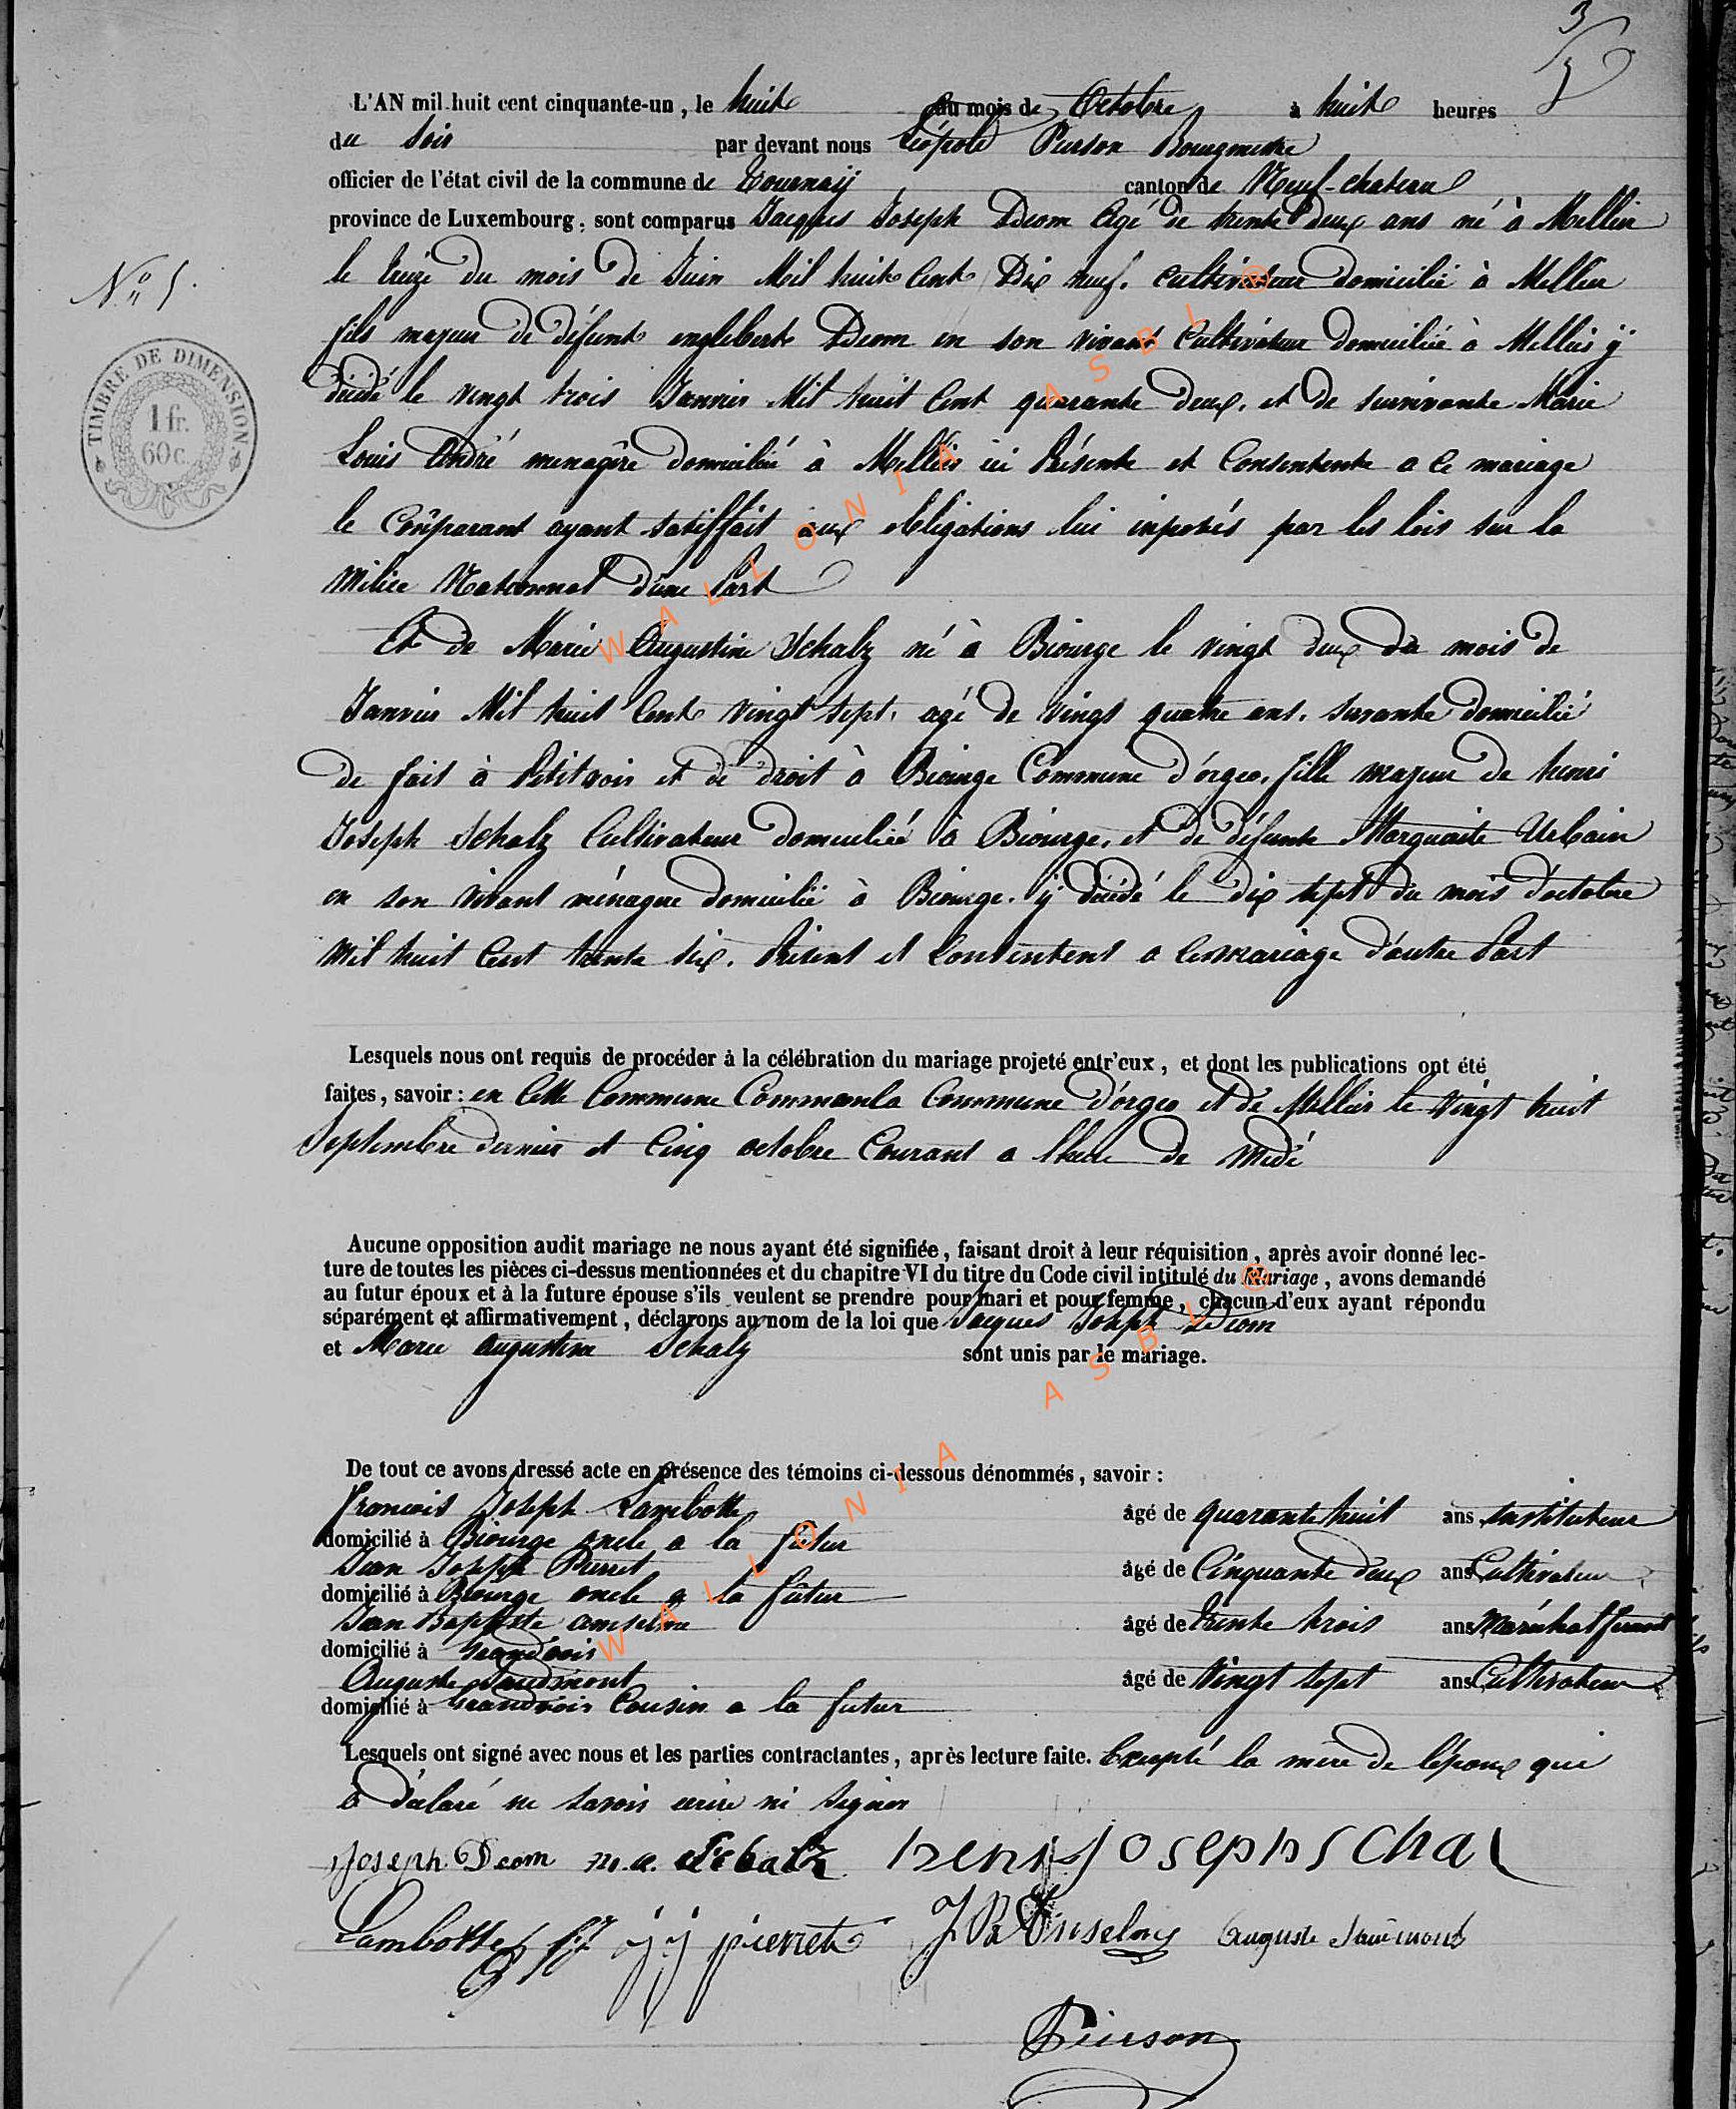 3
L'AN mil huit cent cinquante-un, le huit du mois de Octobre à huit heures
du soir par devant nous Léopold Pierson Bourgmestre
officier de l'état civil de la commune de Tournaÿ canton de Neuf-chateau
province de Luxembourg, sont comparus Jacques Joseph Deom Agé de trente deux ans né à Mellier
le treize du mois de Juin Mil huit Cent Dix neuf. Cultivateur domicilié à Mellier
N° 5.
fils majeur de défunt englebert Deom en son vivant Cultivateur domicilié à Mellier ÿ
décédé le vingt trois Janvier Mil huit Cent quarante deux. et de survivante Marie
TIMBRE DE DIMENSION
1 fr.
60 c.
Louis André menagère domiciliée à Mellier ici Présente et Consentente a ce mariage
le Comparant ayant satisffait aux obligations lui inposés par les lois sur la
Milice National d'une Part
Et de Marie Augustine Schalz né à Biourge le vingt deux du mois de
Janvier Mil huit Cent vingt sept. agé de vingt quatre ans. servante domicilié
de fait à Petitvoir et de droit à Biourge Commune d'orgeo. fille majeur de henri
Joseph Schalz Cultivateur domicilié à Biourge. et de défunte Marguerite Urbain
en son vivant ménagere domicilié à Biourge. ÿ décédé le dix sept du mois d'octobre
mil huit Cent trente six. Présent et Consentent a ce mariage d'autre Part
Lesquels nous ont requis de procéder à la célébration du mariage projeté entr'eux, et dont les publications ont été
faites, savoir : en Cette Commune Commanla Commune d'orgeo et de Mellier le vingt huit
Septembre dernier et Cinq octobre Courant a lheure de midi
Aucune opposition audit mariage ne nous ayant été signifiée, faisant droit à leur réquisition, après avoir donné lec-
ture de toutes les pièces ci-dessus mentionnées et du chapitre VI du titre du Code civil intitulé du Mariage, avons demandé
au futur époux et à la future épouse s'ils veulent se prendre pour mari et pour femme, chacun d'eux ayant répondu
séparément et affirmativement, déclarons au nom de la loi que Jacques Joseph Deom
et Marie augustine Schalz sont unis par le mariage.
De tout ce avons dressé acte en présence des témoins ci-dessous dénommés, savoir :
francois Joseph Lambotte âgé de quarante huit ans instituteur
domicilié à Biourge oncle a la futur
Jean Joseph Pierret âgé de Cinquante deux ans Cultivateur
domicilié à Biourge oncle a la fûtur
Jean Baptiste anselme âgé de trente trois ans Maréchal ferrant
domicilié à Grandvoir
Auguste Jaudmont âgé de vingt sept ans Cultivateur
domicilié à Grandvoir Cousin a la futur
Lesquels ont signé avec nous et les parties contractantes, après lecture faite. Excepté la mère de l'époux qui
à déclaré ne savoir écrire ni signer
Joseph Deom m. a. Schalz henrijosephschal
Lambotte f. J. j j pierret J B Anselme Auguste
Pierson
WALLONIA ASBL ®
WALLONIA ASBL ®